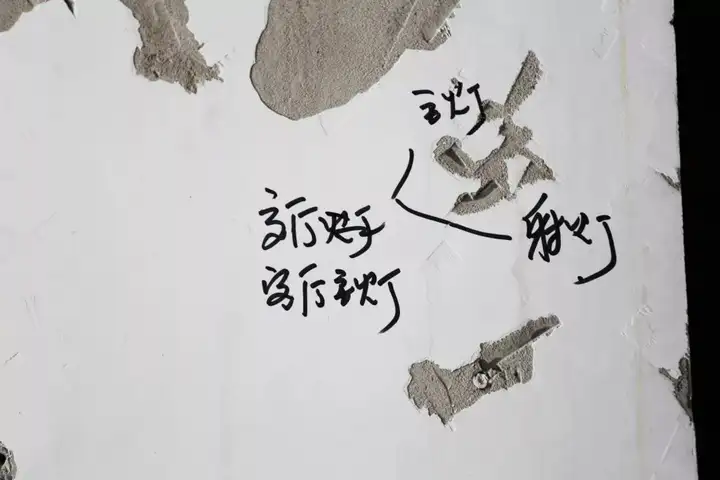 主灯
客厅灯
射灯
客厅主灯